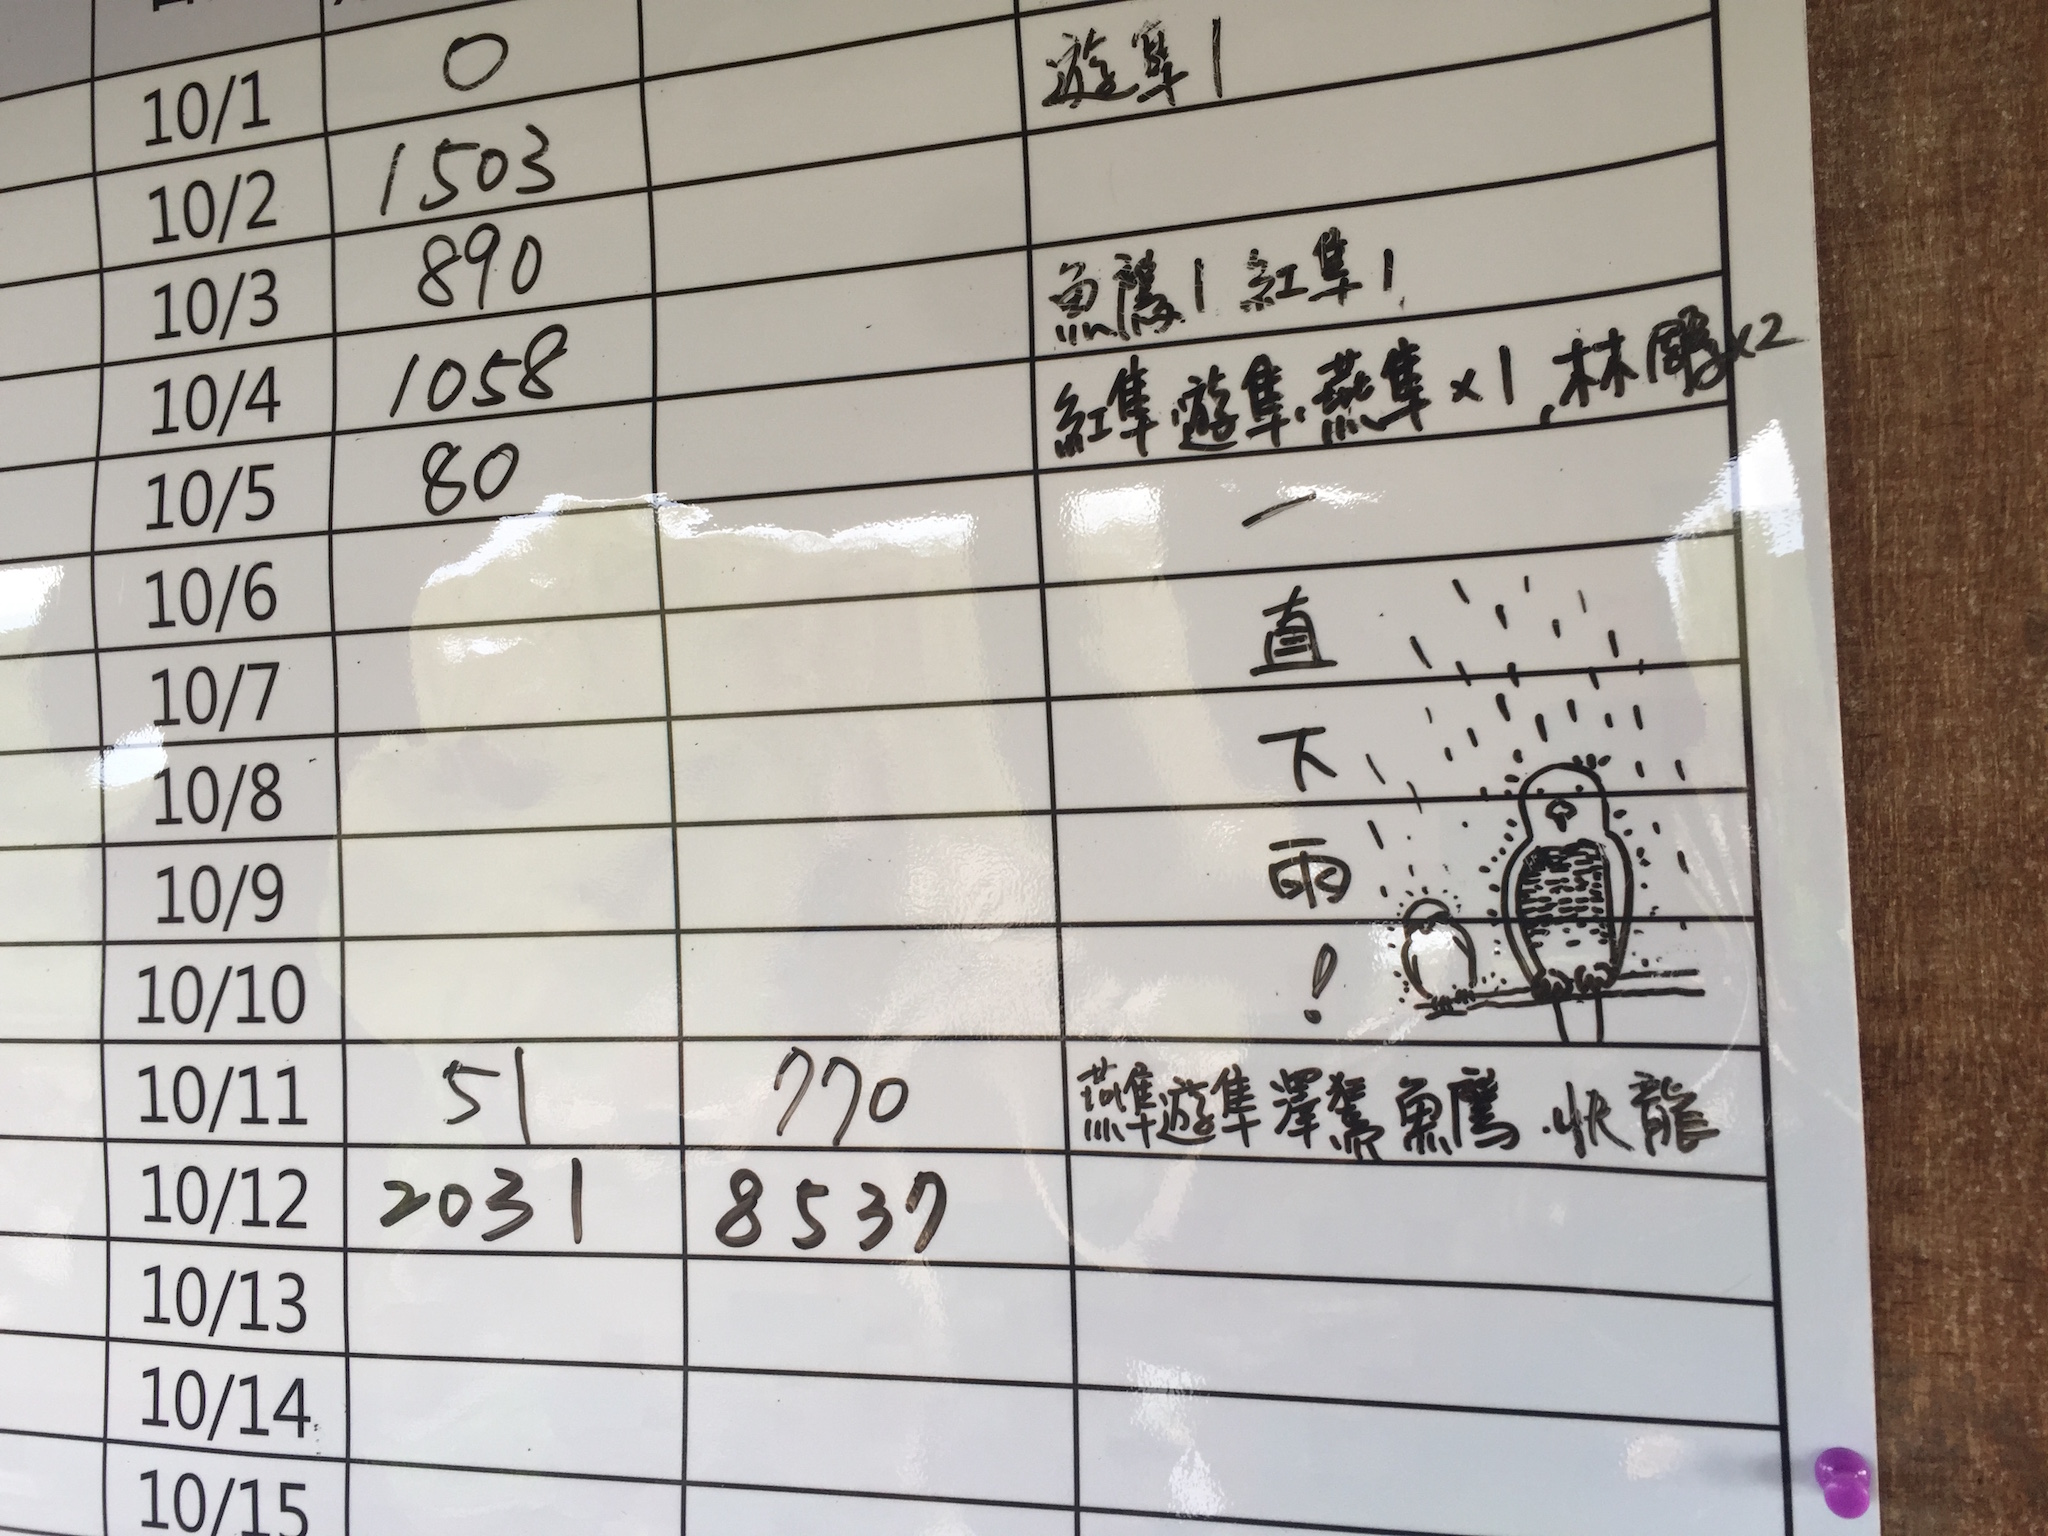 10/1 0 遊隼1
10/2 1503
10/3 890 魚鷹1 紅隼1
10/4 1058 紅隼.遊隼.燕隼x1,林鵰x2
10/5 80 一
10/6 直
10/7 下
10/8 雨
10/9
10/10 !
10/11 51 770 燕隼遊隼澤鵟魚鷹
10/12 2031 8537
10/13
10/14
10/15